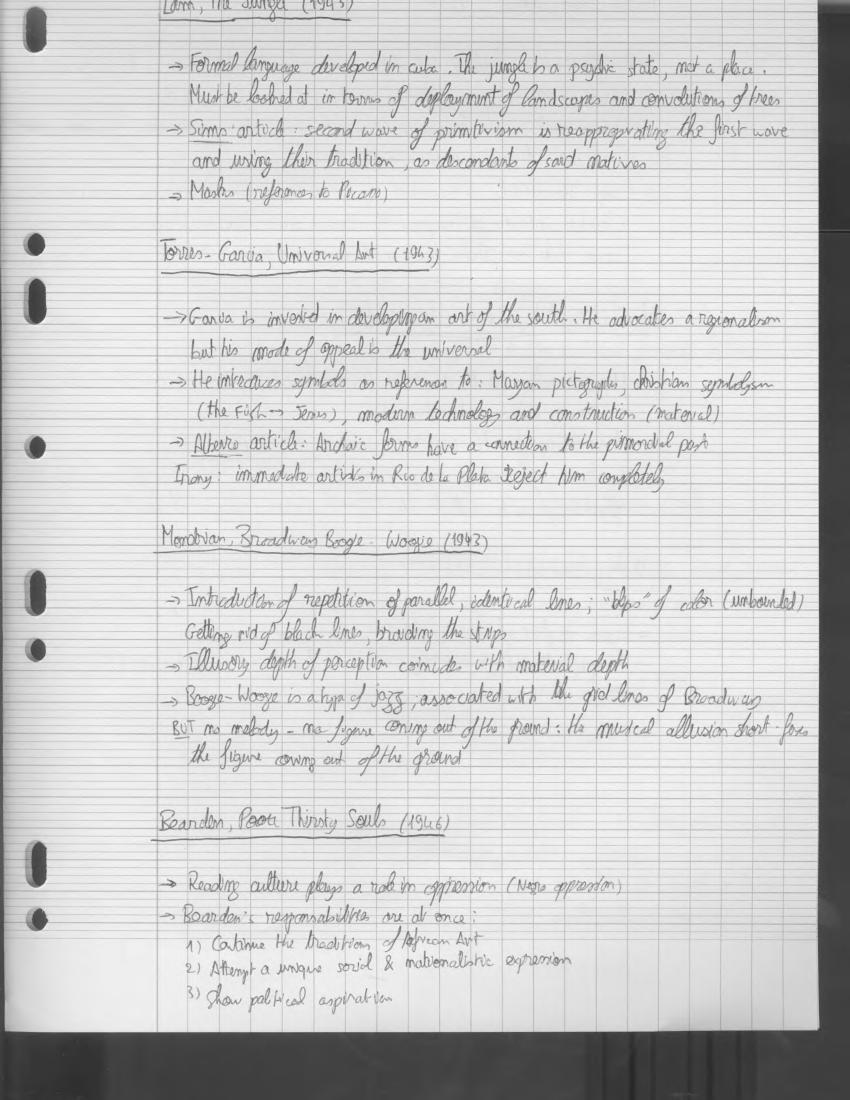 Lam, The Jungle (1943)
→ Formal language developed in cuba. The jungle is a psychic state, not a place.
Must be looked at in terms of deployment of landscapes and convolutions of trees
→ Sims article: second wave of primitivism is reappropriating the first wave
and using their tradition, as descendants of said natives
→ Masks (references to Picasso)
Torres-Garcia, Universal Art (1943)
→ Garcia is invested in developing an art of the south. He advocates a regionalism
but his mode of appeal is the universal
→ He introduces symbols as references to: Mayan pictographs, christian symbolism
(the Fish → Jesus), modern technology and construction (material)
→ article: Archaic forms have a connection to the primordial past
Irony: immediate artists in Rio de la Plata reject him completely
Mondrian, Broadway Boogie-Woogie (1943)
→ Introduction of repetition of parallel, identical lines; "blips" of color (unbounded)
Getting rid of black lines, braiding the strips
→ Illusory depth of perception coincides with material depth
→ Boogie-Woogie is a type of jazz, associated with the grid lines of Broadway
BUT no melody - no figure coming out of the ground: the musical allusion
the figure coming out of the ground
Bearden, Poor Thirsty Souls (1946)
→ Reading culture plays a role in oppression (Negro oppression)
→ Bearden's responsabilities are at once:
1) Continue the tradition of African Art
2) Attempt a unique social & nationalistic expression
3) Show political aspiration